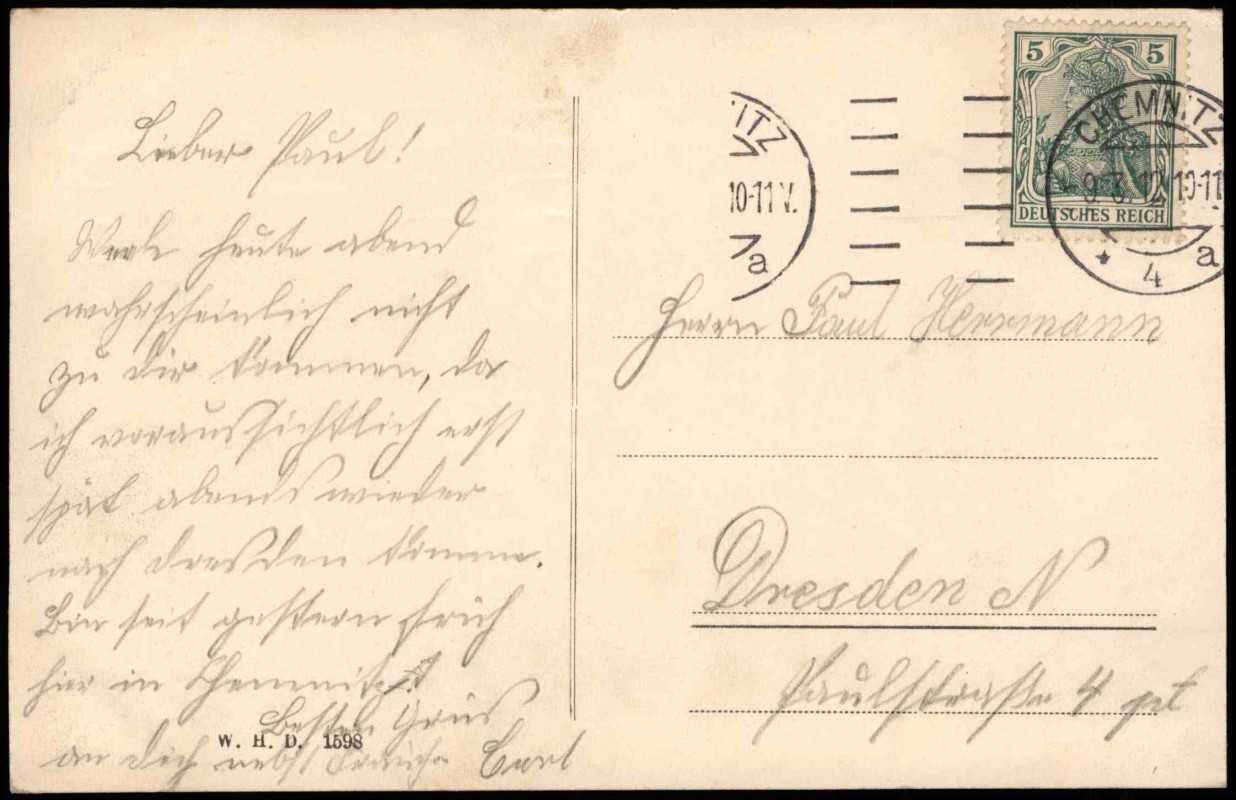 Lieber Paul!
Werde heute abend
wahrscheinlich nicht
zu dir kommen, da
ich voraussichtlich erst
spät abends wieder
nach Dresden komme.
Bin seit gestern früh
hier in Chemnitz.
Besten Gruß
an dich nebst Carl
W. H. D. 1598
5 5
DEUTSCHES REICH
ITZ
10-11 V.
a
CHEMNITZ
10-11
* 4 a
Herrn Paul Herrmann
Dresden N
Paulstraße 4 pt